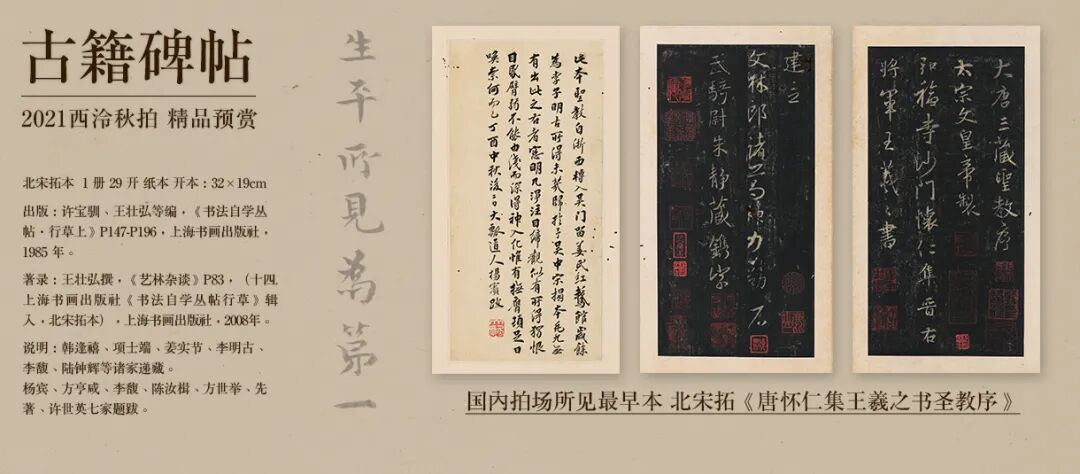 古籍碑帖
2021西泠秋拍 精品预赏
北宋拓本 1 册 29 开 纸本 开本：32×19cm
出版：许宝驯、王壮弘等编，《书法自学丛
帖·行草上》P147-P196，上海书画出版社，
1985 年。
著录：王壮弘撰，《艺林杂谈》P83，（十四.
上海书画出版社《书法自学丛帖行草》辑
入，北宋拓本），上海书画出版社，2008年。
说明：韩逢禧、项士端、姜实节、李明古、
李馥、陆钟辉等诸家递藏。
杨宾、方亨咸、李馥、陈汝楫、方世举、先
著、许世英七家题跋。
生平所見為第一
此本聖教自浙西入吴門留姜氏紅鵞館歲餘
為李子明古所得未幾歸於予吴中宋搨本無
有出此之右者窓明几淨注目締觀似有所得獨恨
目眵臂弱不能由淺而深得神入化惟有撫膺頓足日
喚奈何而已丁酉中秋後大瓢道人楊賓跋
大唐三藏聖教序
太宗文皇帝製
弘福寺沙門懷仁集晉右
將軍王羲之書
建立
文林郎諸葛神力勒石
武騎尉朱靜藏鐫字
国内拍场所见最早本 北宋拓《唐怀仁集王羲之书圣教序》